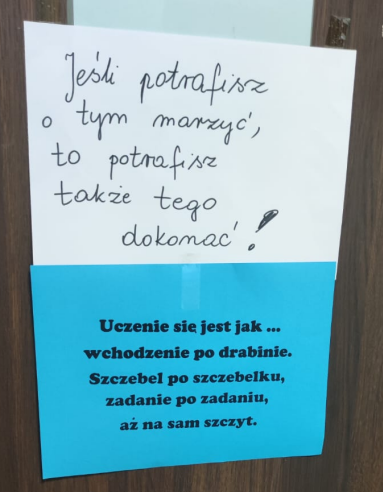 Jeśli potrafisz
o tym marzyć,
to potrafisz
także tego
dokonać!
Uczenie się jest jak ...
wchodzenie po drabinie.
Szczebel po szczebelku,
zadanie po zadaniu,
aż na sam szczyt.